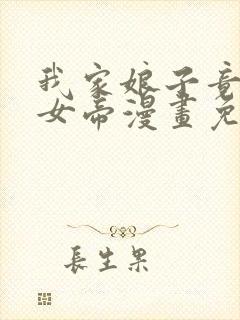 我家娘子竟
女帝漫畫免
長生果